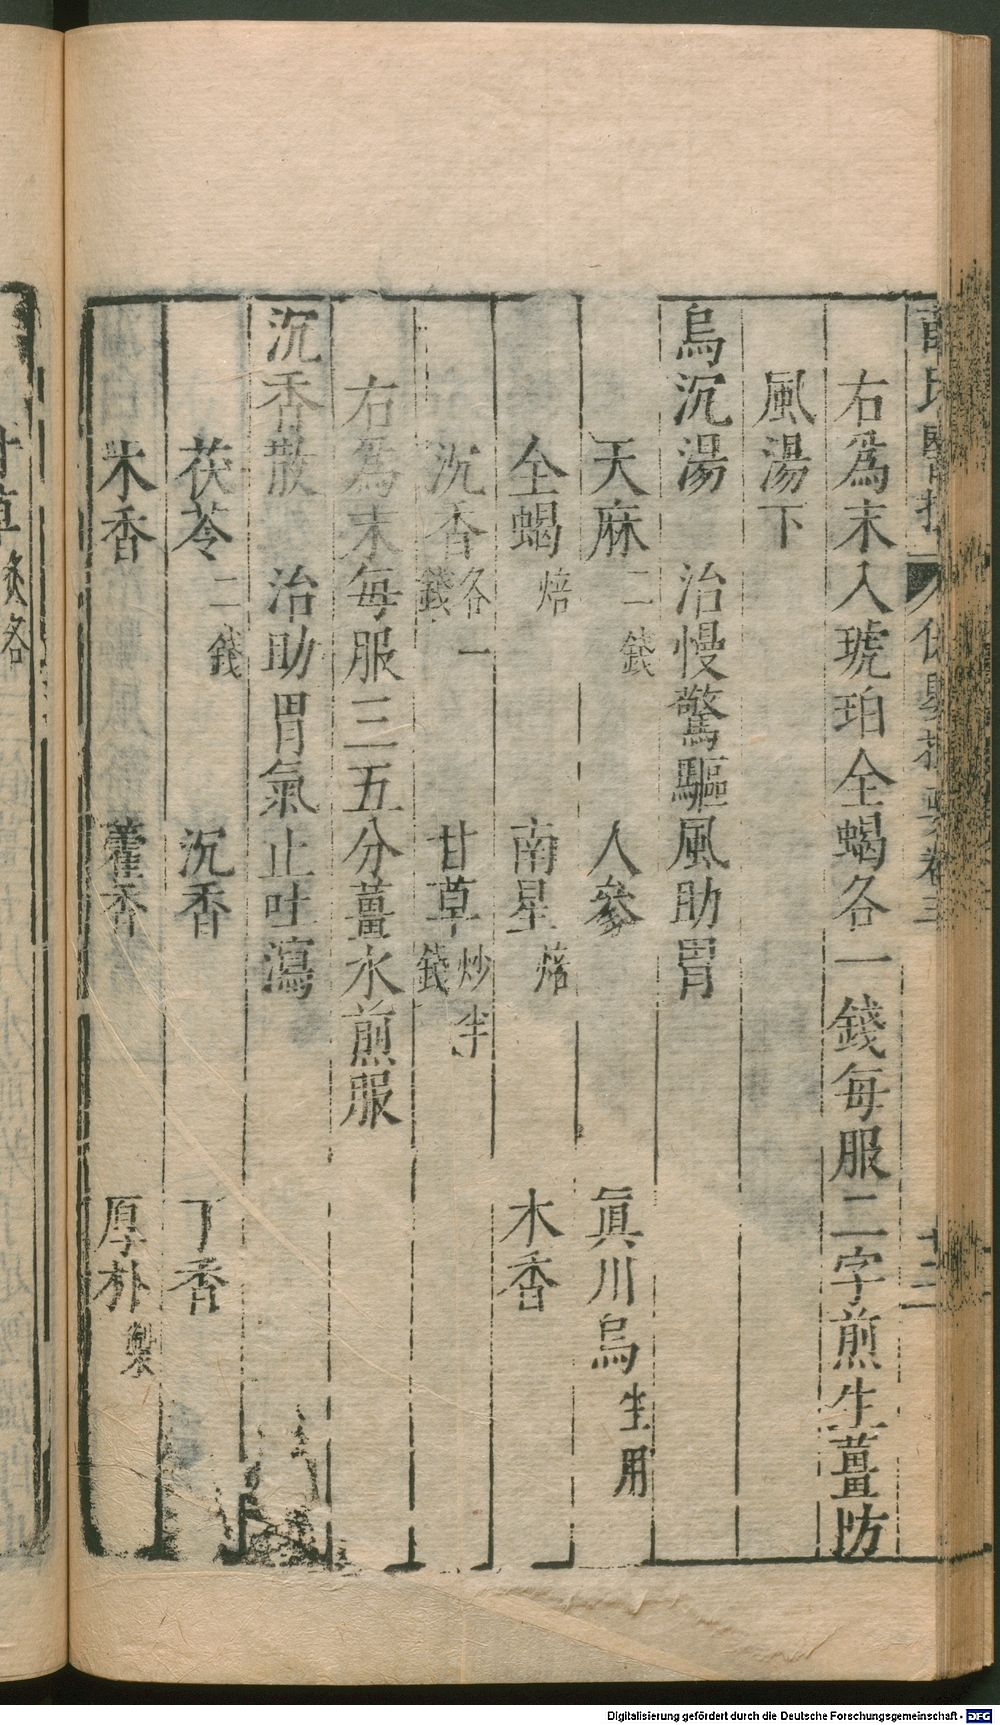 右為末入琥珀全蝎各一錢每服二字煎生薑防
風湯下
烏沉湯　治慢驚驅風助胃
天麻二錢　人參　眞川烏生用
全蝎焙　南星焙　木香
沉香各一錢　甘草炒半錢
右為末每服三五分薑水煎服
沉香散　治助胃氣止吐瀉
茯苓二錢　沉香　丁香
木香　藿香　厚朴製
甘草炙各
Digitalisierung gefördert durch die Deutsche Forschungsgemeinschaft - DFG